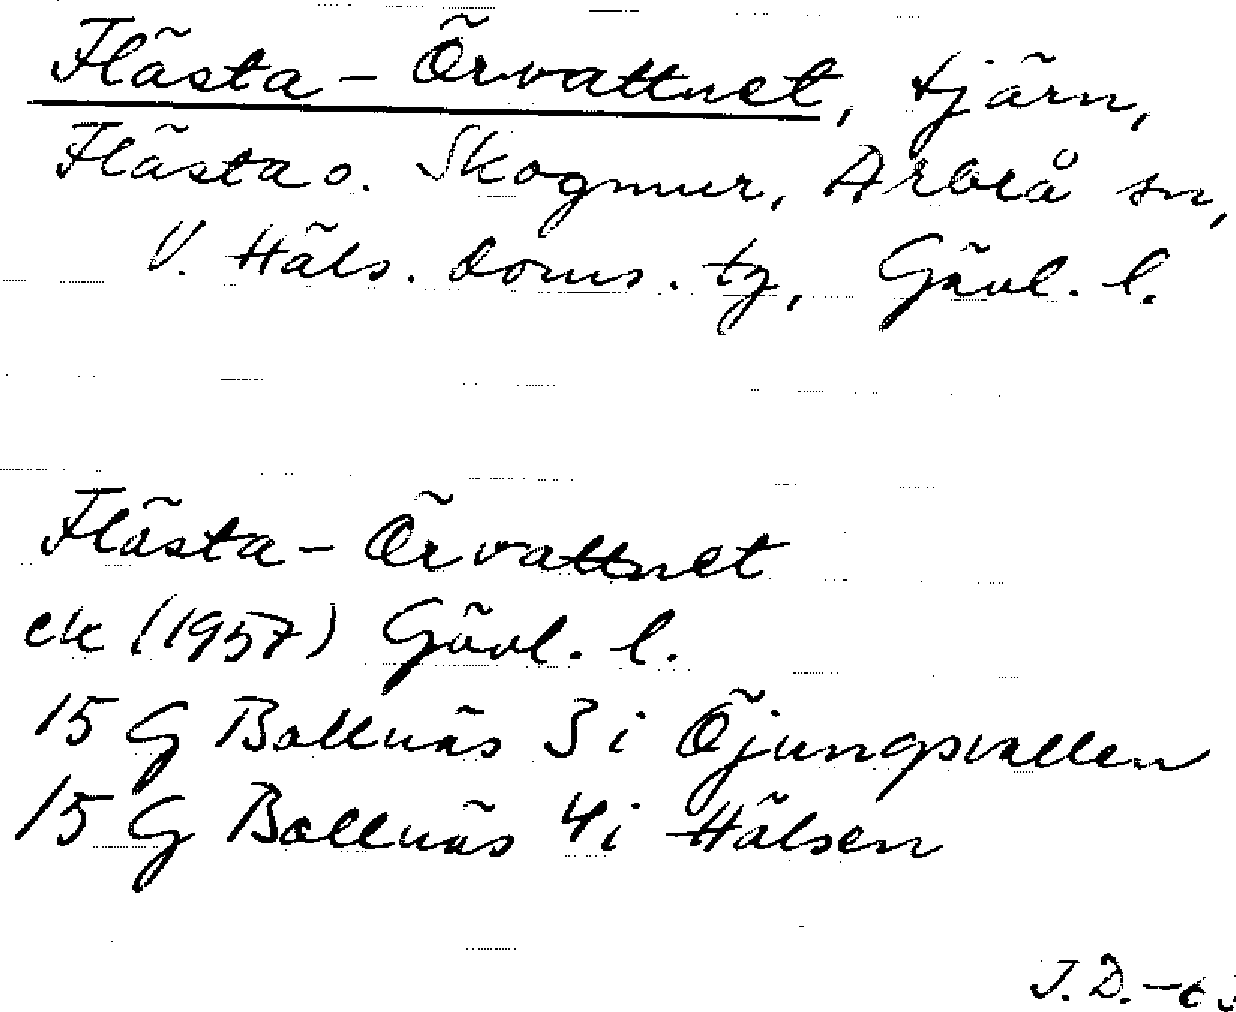 Flästa-Örvattnet, tjärn,
Flästa o. Skogmur, Arbrå sn,
V. Häls. doms. tg, Gävl. l.
Flästa-Örvattnet
ek (1957) Gävl. l.
15 G Bollnäs 3 i Öjungsvallen
15 G Bollnäs 4 i Hälsen
J. D.